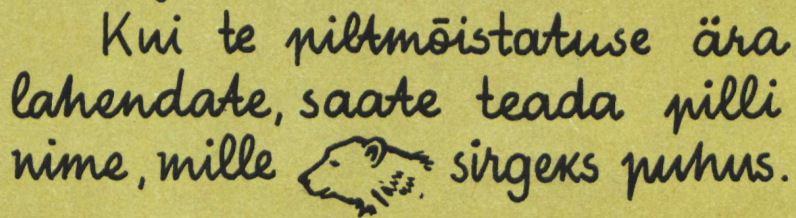 Kui te piltmõistatuse ära
lahendate, saate teada pilli
nime, mille sirgeks puhus.